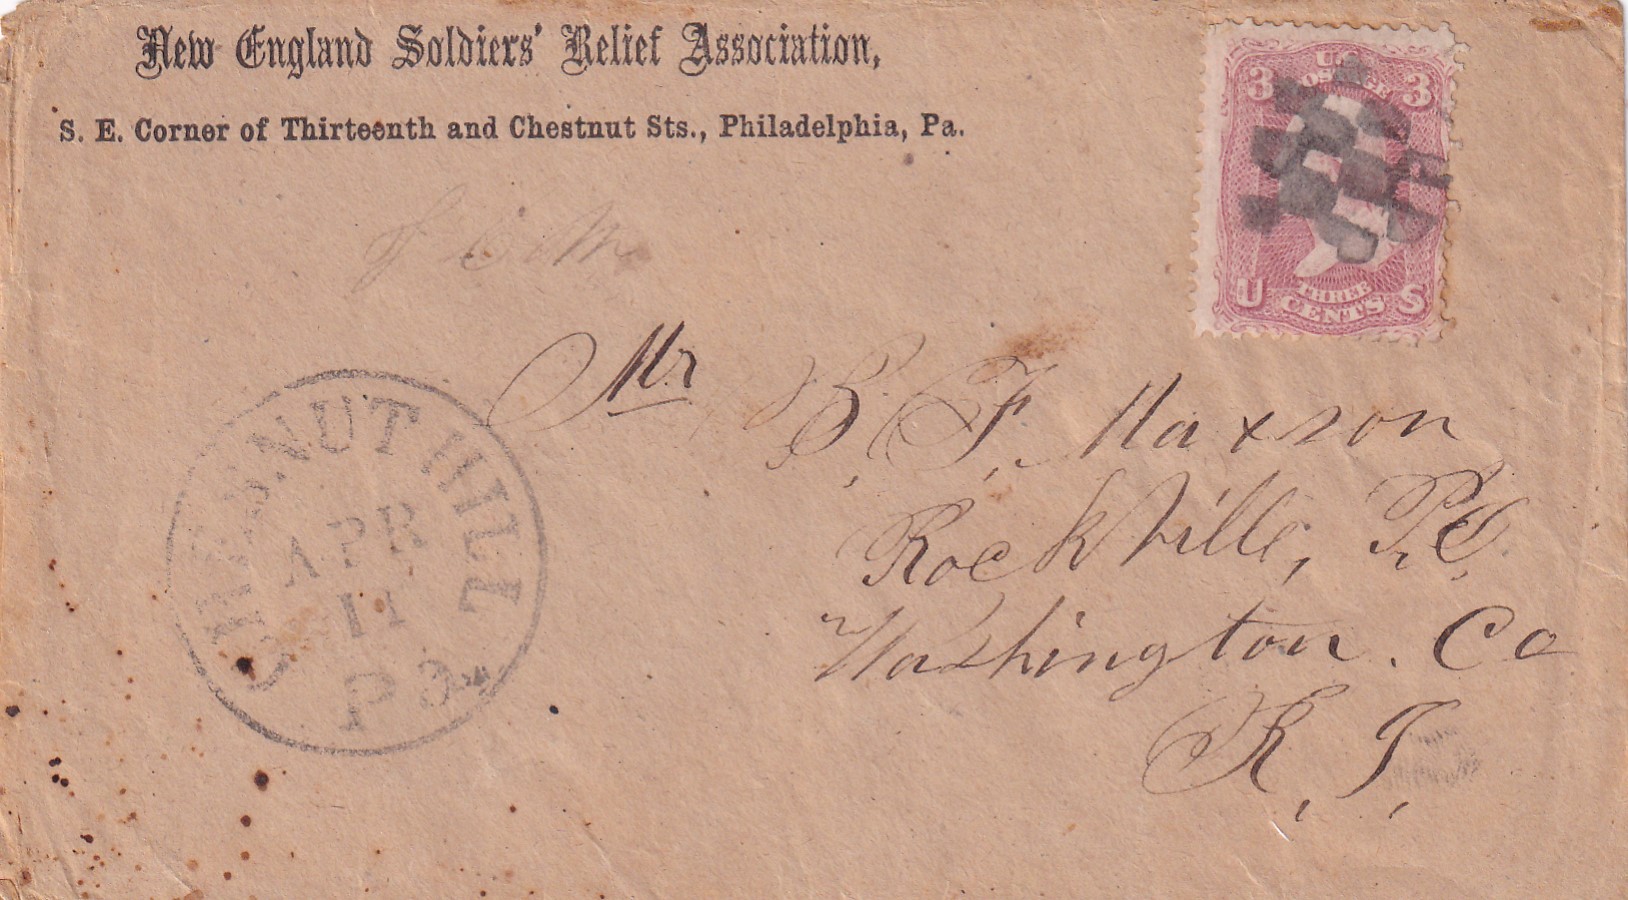 New England Soldiers' Relief Association,
S. E. Corner of Thirteenth and Chestnut Sts., Philadelphia, Pa.
3 U.S. POSTAGE 3
U THREE CENTS S
CHESNUT HILL
APR
11
Pa.
Mr B. F. Maxson
Rockville, P.O.
Washington. Co
R. I.